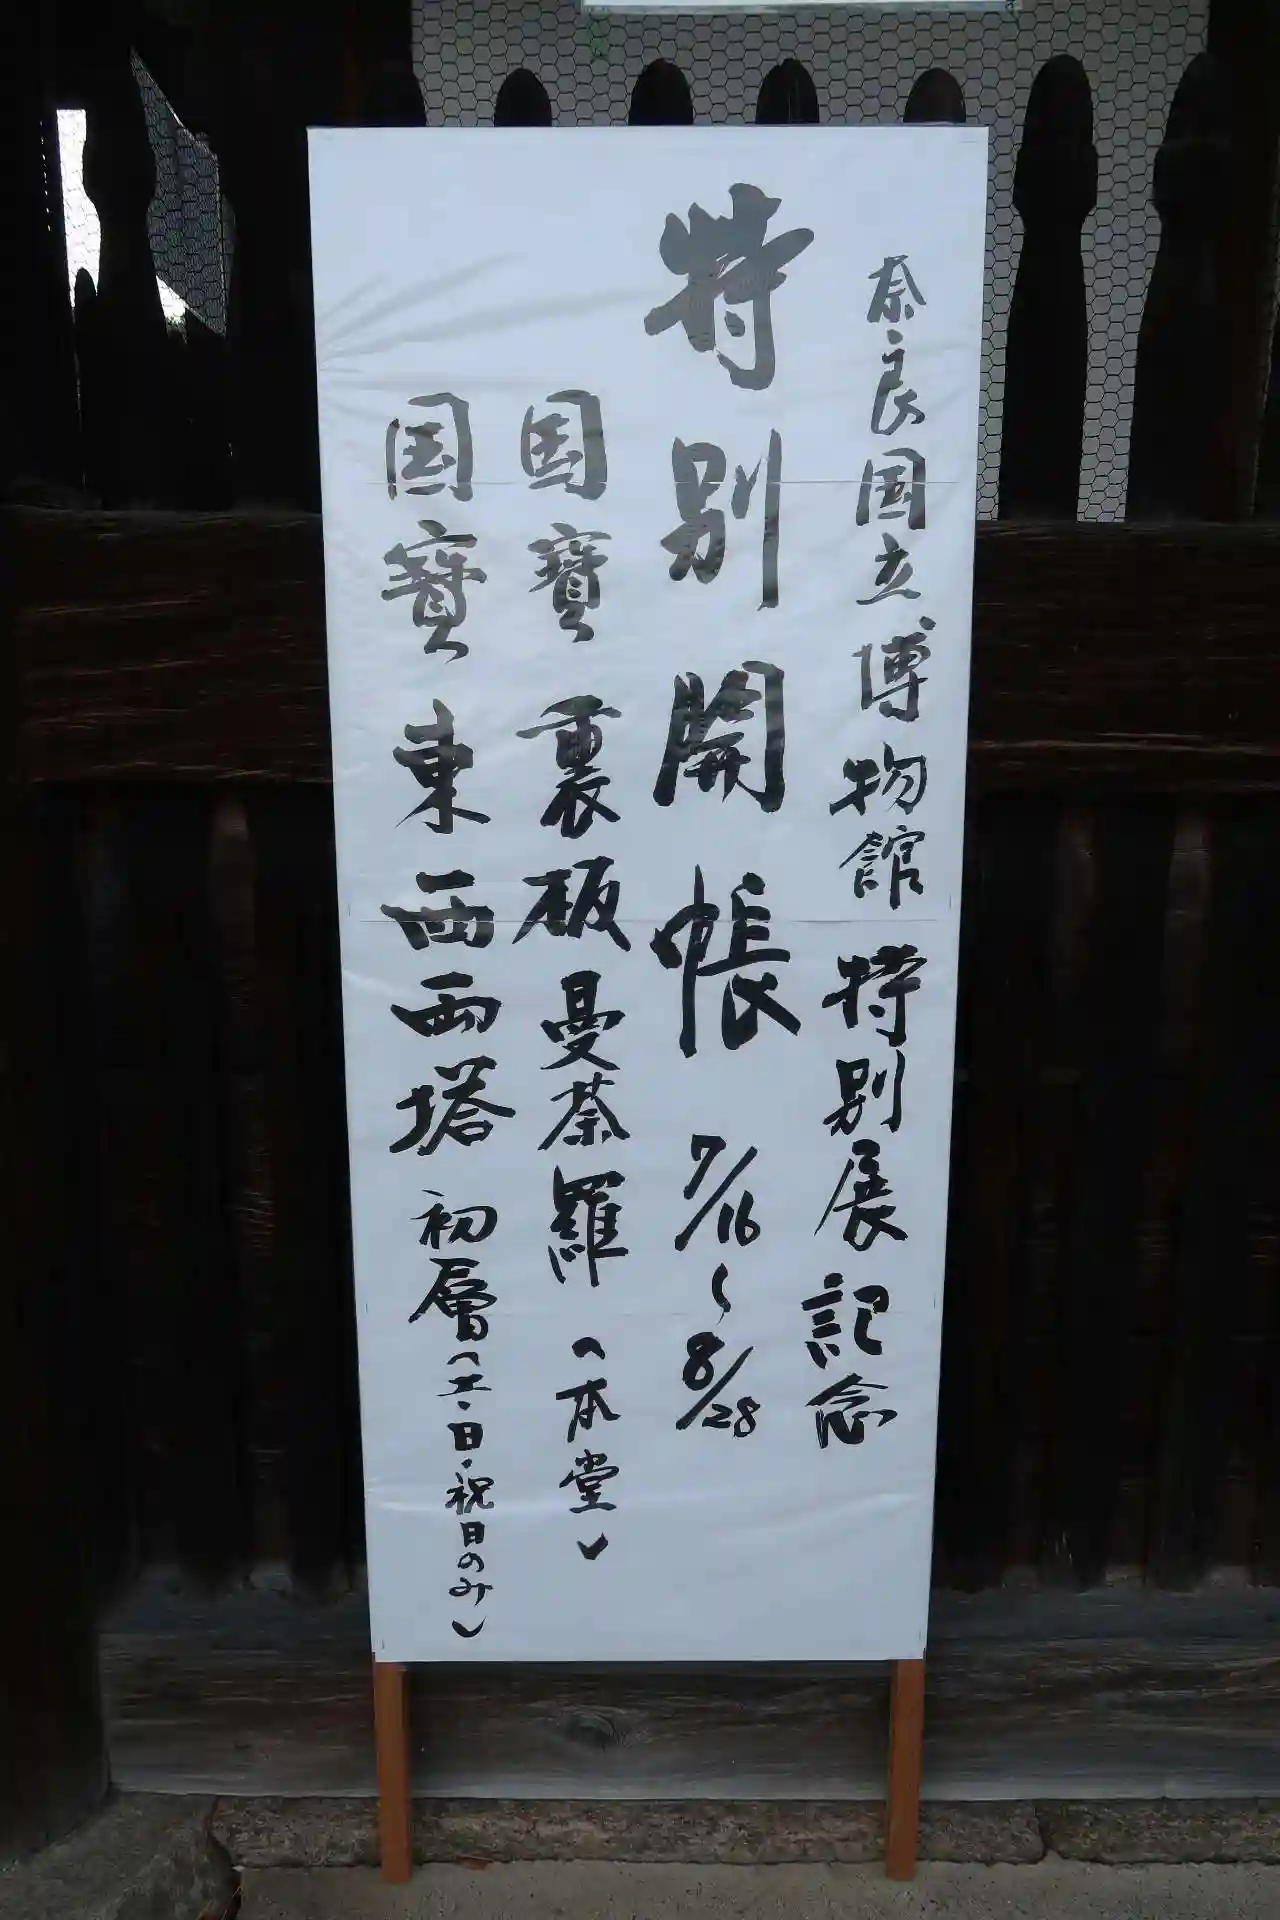 奈良国立博物館 特別展 記念
特別開帳 7/16〜8/28
国寶 裏板曼荼羅(本堂)
国寶 東西両塔 初層(土・日・祝日のみ)